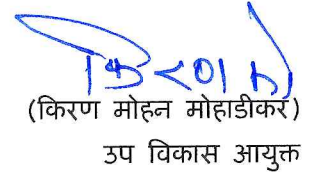 (किरण मोहन मोहाडीकर)
उप विकास आयुक्त